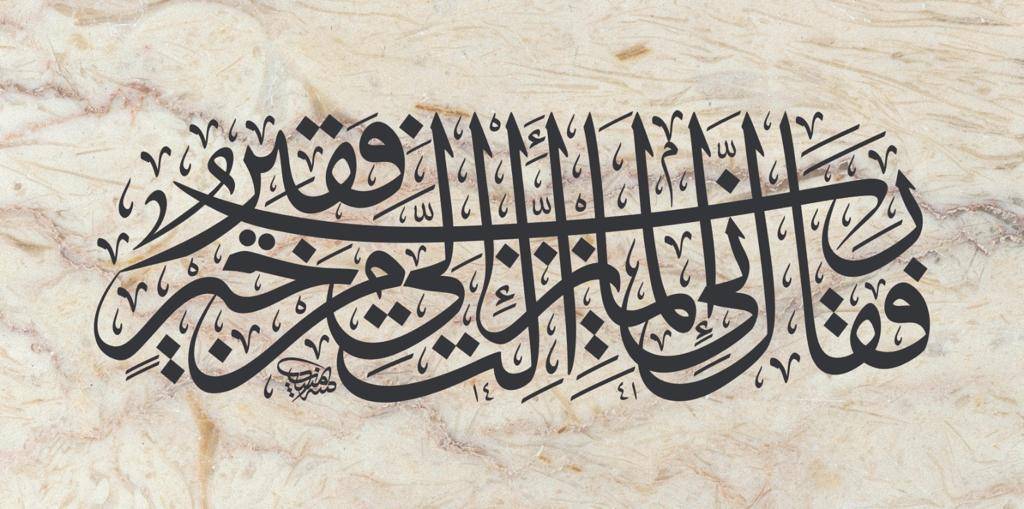 فَقَالَ رَبِّ إِنِّي لِمَا أَنْزَلْتَ إِلَيَّ مِنْ خَيْرٍ فَقِيرٌ
١٤ ٤١